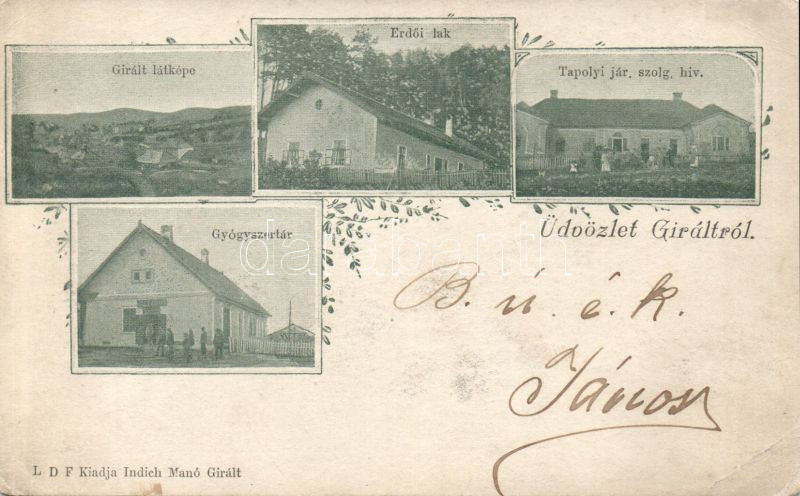 Erdői lak
Girált látképe
Tapolyi jár, szolg, hiv.
Gyógyszertár
Üdvözlet Giráltról.
B. ú. é. k.
János
L D F Kiadja Indich Manó Girált
darabanth